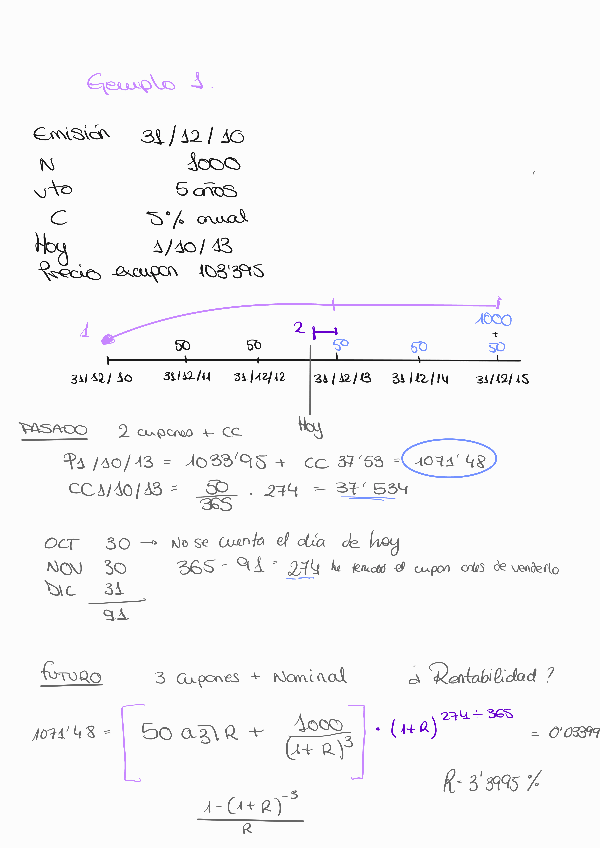 Ejemplo 1.
Emisión 31/12/10
N 1000
Vto 5 años
C 5% anual
Hoy 1/10/13
Precio excupon 103'395
1 2 1000
+
50 50 50 50 50
31/12/10 31/12/11 31/12/12 31/12/13 31/12/14 31/12/15
Hoy
PASADO 2 cupones + CC
P1/10/13 = 1033'95 + CC 37'53 = 1071'48
CC1/10/13 = 50/365 · 274 = 37'534
OCT 30 → No se cuenta el día de hoy
NOV 30 365 - 91 = 274 he tenido el cupon antes de venderlo
DIC 31
91
FUTURO 3 cupones + Nominal ¿Rentabilidad?
1071'48 = [50 a3|R + 1000/(1+R)^3] · (1+R)^274÷365 = 0'03399
R= 3'3995 %
1-(1+R)^-3
R